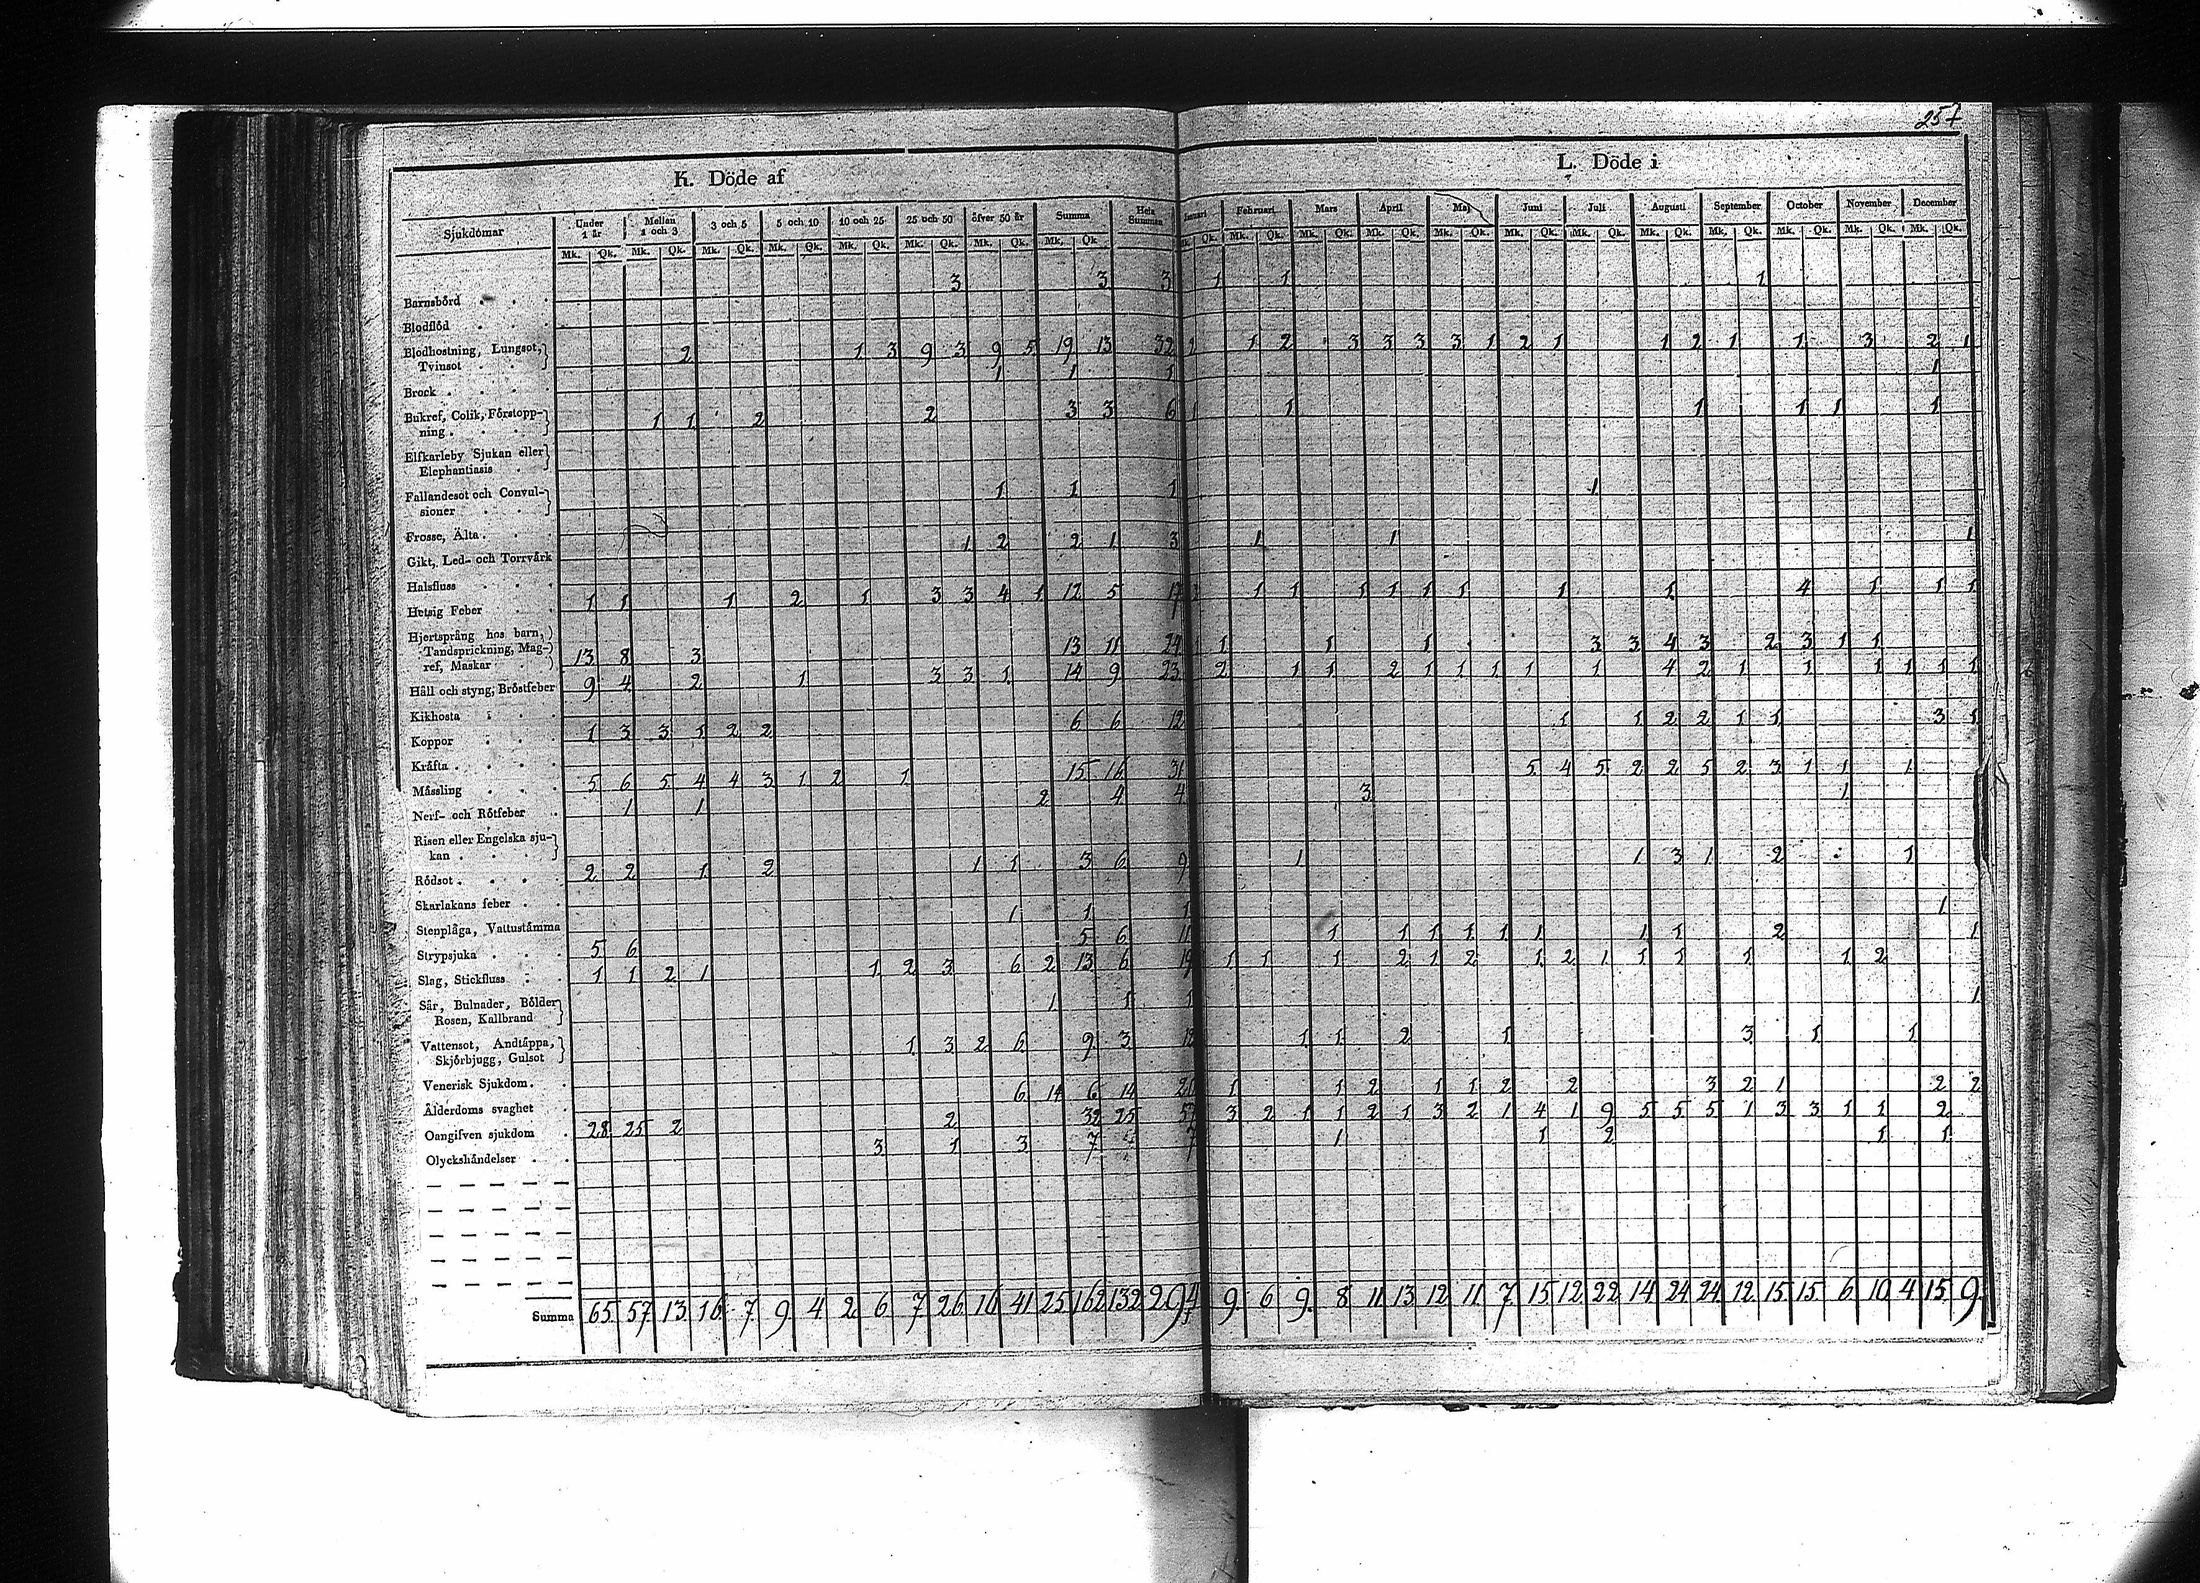 257
K. Döde af
L. Döde i
Sjukdomar Under 1 år Mellan 1 och 3 3 och 5 5 och 10 10 och 25 25 och 50 öfver 50 år Summa Hela Summa Januari Februari Mars April Maj Juni Juli Augusti September October November December
Mk. Qk. Mk. Qk. Mk. Qk. Mk. Qk. Mk. Qk. Mk. Qk. Mk. Qk. Mk. Qk. Mk. Qk. Mk. Qk. Mk. Qk. Mk. Qk. Mk. Qk. Mk. Qk. Mk. Qk. Mk. Qk. Mk. Qk. Mk. Qk. Mk. Qk. Mk. Qk.
Barnsbörd 3 3 3 1 1 1
Blodflöd
Blodhostning, Lungsot, Tvinsot 2 1 3 9 3 9 5 19 13 32 2 1 2 3 3 3 3 1 2 1 1 2 1 1 3 2 1
Brock 1 1 1 1
Bukref, Colik, Förstoppning 1 1 2 2 3 3 6 1 1 1 1 1 1
Elfkarleby Sjukan eller Elephantiasis
Fallandesot och Convulsioner 1 1 1 1
Frosse, Älta
Gikt, Led- och Torrvärk 1 2 2 1 3 1 1 1
Halsfluss
Hetsig Feber 1 1 1 2 1 3 3 4 1 12 5 17 2 1 1 1 1 1 1 1 1 4 1 1 1
Hjertsprång hos barn, Tandsprickning, Magref, Maskar 13 8 3 13 11 24 1 1 1 1 3 3 4 3 2 3 1 1
Håll och styng, Bröstfeber 9 4 2 1 3 3 1 14 9 23 2 1 1 2 1 1 1 1 1 4 2 1 1 1 1 1 1
Kikhosta
Koppor 1 3 3 1 2 2 6 6 12 1 1 2 2 1 1 3 1
Kräfta
Mässling 5 6 5 4 4 3 1 2 1 15 16 31 5 4 5 2 2 5 2 3 1 1 1
Nerf- och Rötfeber 1 1 2 4 4 3 1
Risen eller Engelska sjukan
Rödsot 2 2 1 2 1 1 3 6 9 1 1 3 1 2 1
Skarlakans feber
Stenplåga, Vattustämma 1 1 1 1
Strypsjuka 5 6 5 6 11 1 1 1 1 1 1 1 1 2 1
Slag, Stickfluss 1 1 2 1 1 2 3 6 2 13 6 19 1 1 1 2 1 2 1 2 1 1 1 1 1 2
Sår, Bulnader, Bölder Rosen, Kallbrand 1 1 1 1
Vattensot, Andtäppa, Skjörbjugg, Gulsot 1 3 2 6 9 3 12 1 1 2 1 3 1 1
Venerisk Sjukdom
Ålderdoms svaghet 6 14 6 14 20 1 1 2 1 1 2 2 3 2 1 2 2
Oangifven sjukdom 28 25 2 2 32 25 57 3 2 1 1 2 1 3 2 1 4 1 9 5 5 5 1 3 3 1 1 2
Olyckshändelser 3 1 3 7 7 1 1 2 1 1
Summa 65 57 13 16 7 9 4 2 6 7 26 16 41 25 162 132 294 9 6 9 8 11 13 12 11 7 15 12 22 14 24 24 12 15 15 6 10 4 15 9